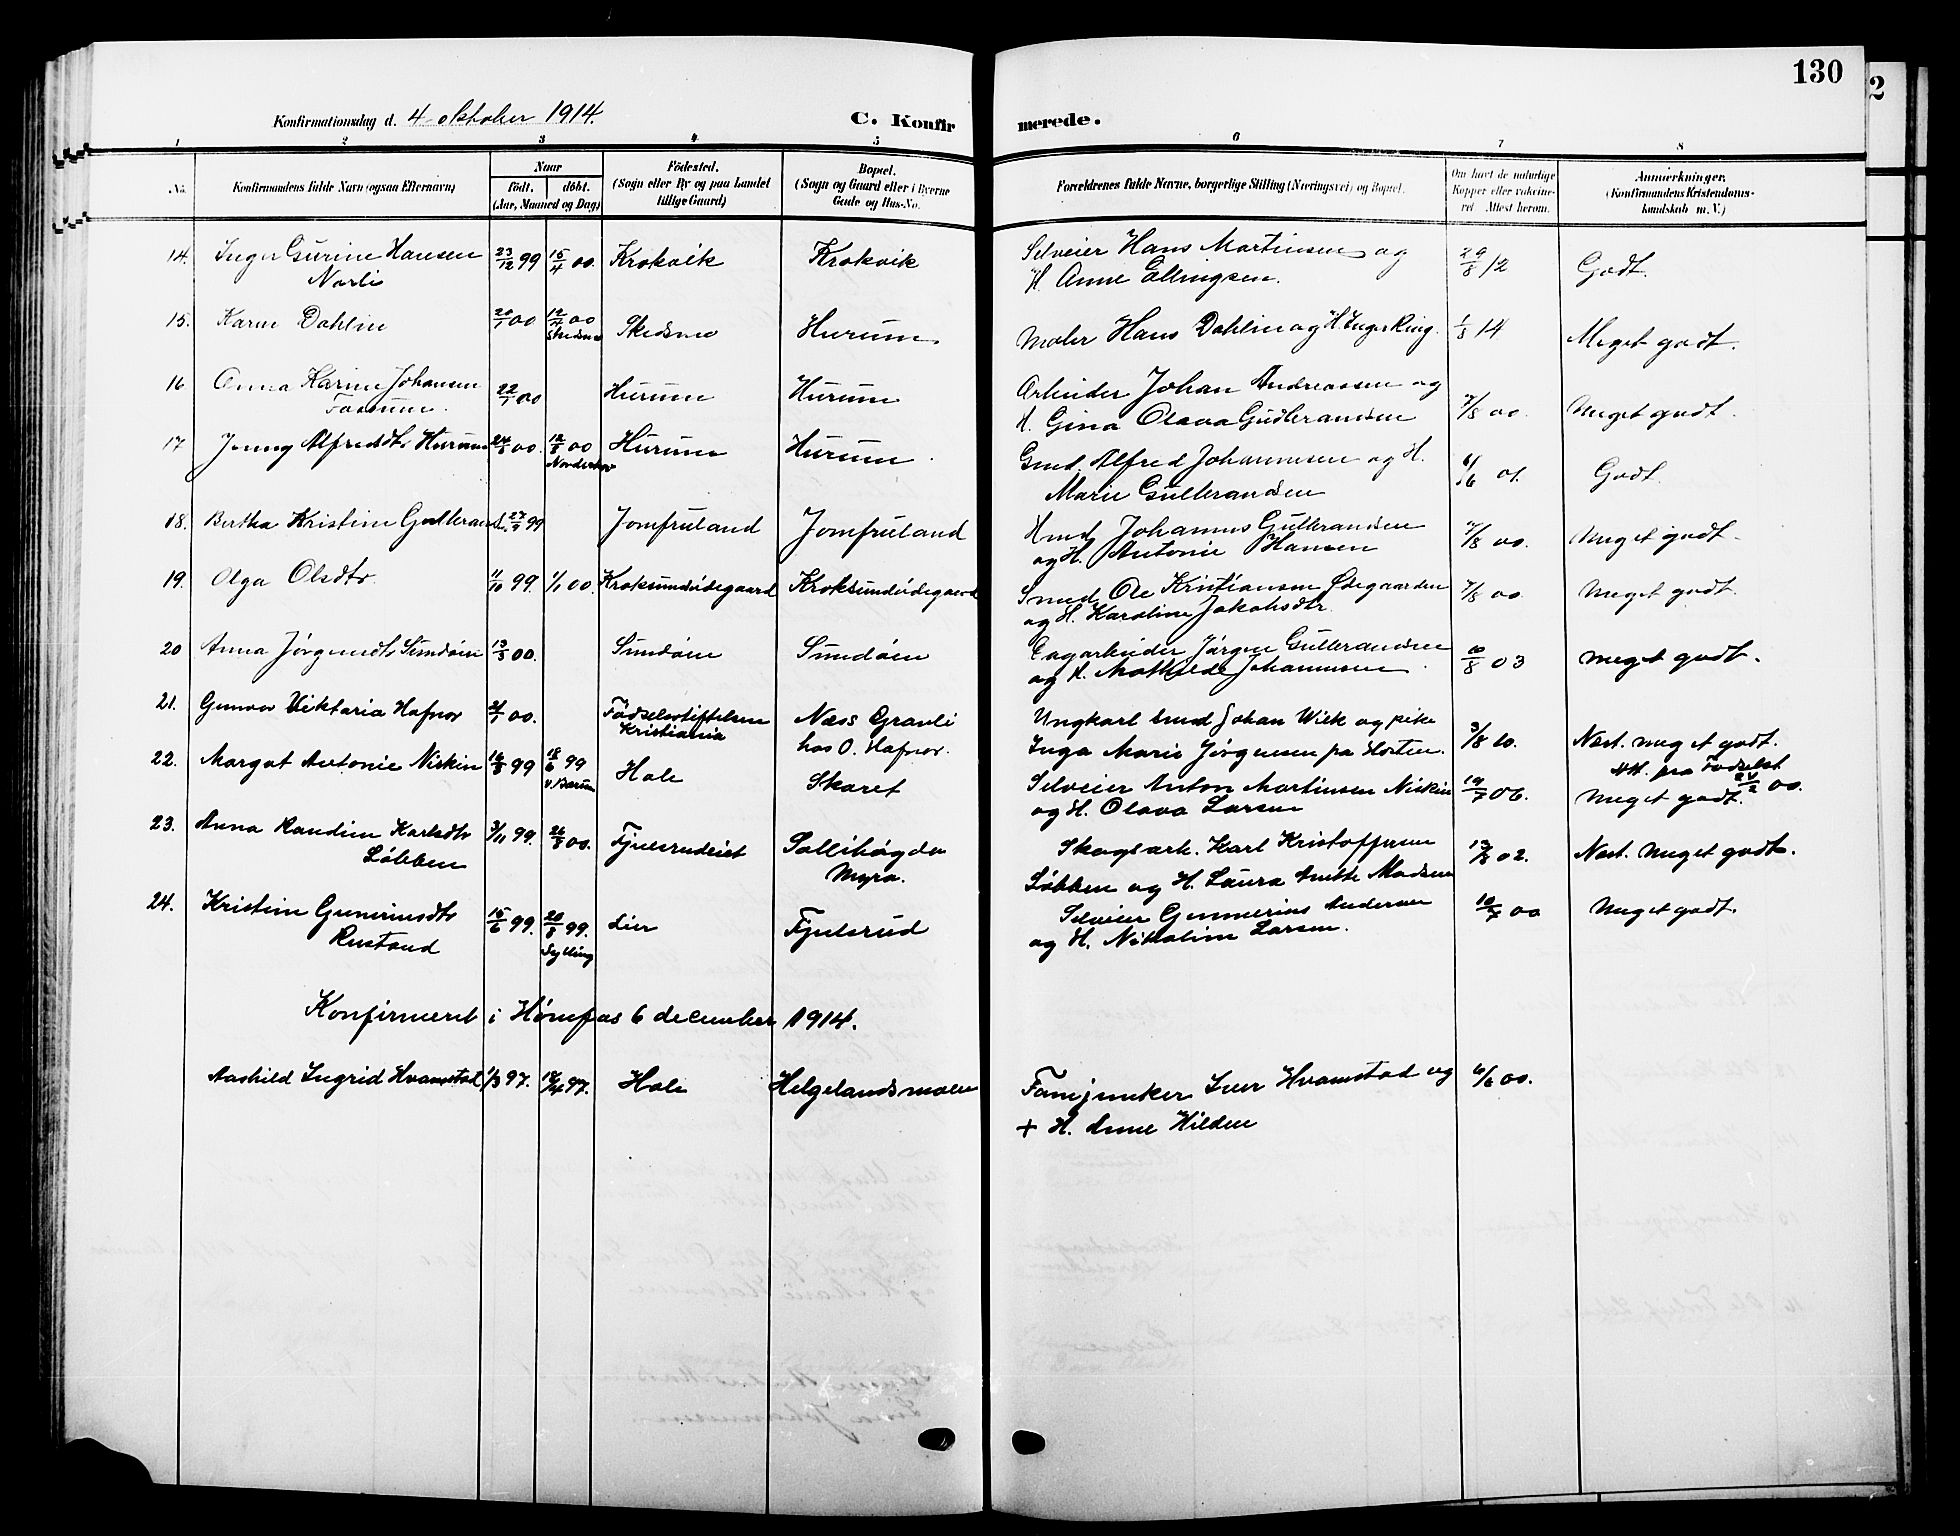 130
2
Konfirmationsdag d. 4 oktober 1914.
C. Konfirmerede.
1 2 3 4 5 6 7 8
No.
Konfirmandens fulde Navn (ogsaa Efternavn)
Naar
født. døbt.
(Aar, Maaned og Dag)
Fødested.
(Sogn eller By og paa Landet
tillige Gaard)
Bopæl.
(Sogn og Gaard eller i Byerne
Gade og Hus-No.
Forældrenes fulde Navne, borgerlige Stilling (Næringsvei) og Bopæl.
Om havt de naturlige
Kopper eller vakcine-
ret Attest herom.
Anmerkninger.
(Konfirmandens Kristendoms-
kundskab m. V.)
14. Inger Gurine Hansen 23/12 99 15/4 00. Krokvik Krokvik Selveier Hans Martinsen og 29/8 12 Godt.
Norli H. Anne Ellingsen.
15. Karen Dahlin 20/1 00 12/4 00 Skedsmo Hurum Maler Hans Dahlin og H. Inger Ring. 1/8 14 Meget godt.
Skedsmo
16 Anna Karine Johansen 22/1 00 Hurum Hurum Arbeider Johan Andreassen og 7/8 00. Meget godt.
Fossum. H. Gina Olava Gudbrandsen
17 Jenny Alfredsdtr Hurum 24/5 00. 12/8 00 Hurum Hurum. Gmd. Alfred Johannesen og H. 6/6 01. Godt.
Norderhov Marie Gulbrandsen
18. Bertha Kristine Gulbrandsen 27/9 99 Jomfruland Jomfruland Hmd Johannes Gulbrandsen 7/8 00. Meget godt.
og H. Antonie Hansen
19. Olga Olsdtr. 11/10 99. 1/1 00. Kroksundødegaard Kroksundødegaard Smed Ole Kristiansen Ødegaarden 7/8 00. Meget godt.
og H. Karoline Jakobsdtr.
20 Anna Jørgensdtr Sundøen 13/3 00. Sundøen Sundøen Dagarbeider Jørgen Gulbrandsen 10/8 03 meget godt.
og H. Mathilde Johannesen.
21. Gunvor Viktoria Hafnor 21/1 00. Fødselsstiftelsen Næss Gravli Ungkarl smed Johan Wiik og pike 3/8 10. Næst. meget godt.
Kristiania hos O. Hafnor. Inga Marie Jørgensen fra Horten. Att. fra Fødselst 24/2 00.
22. Margot Antonie Niskin 16/3 99 18/6 99 Hole Skaret Selveier Anton Martinsen Niskin 19/7 06. Meget godt.
V. Bærum og H. Olava Larsen
23. Anna Randine Karlsdtr 3/11 99. 26/8 00. Fjulsrudeiet Sollihøgda Skogsarb. Karl Kristoffersen 13/8 02. Næst. meget godt.
Løbben Myra. Løbben og H. Laura Anette Madsen
24. Kristine Gunnerinsdtr 15/6 99. 20/8 99. Lier Fjulsrud Selveier Gunnerius Andersen 10/7 00 Meget godt.
Rustand Sylling og H. Nikoline Larsen.
Konfirmeret i Hønefos 6 december 1914.
Aashild Ingrid Hvamstad 1/3 97. 18/4 97. Hole Helgelandsmoen Fanejunker Iver Hvamstad og 6/6 00.
+ H. Anne Hilden